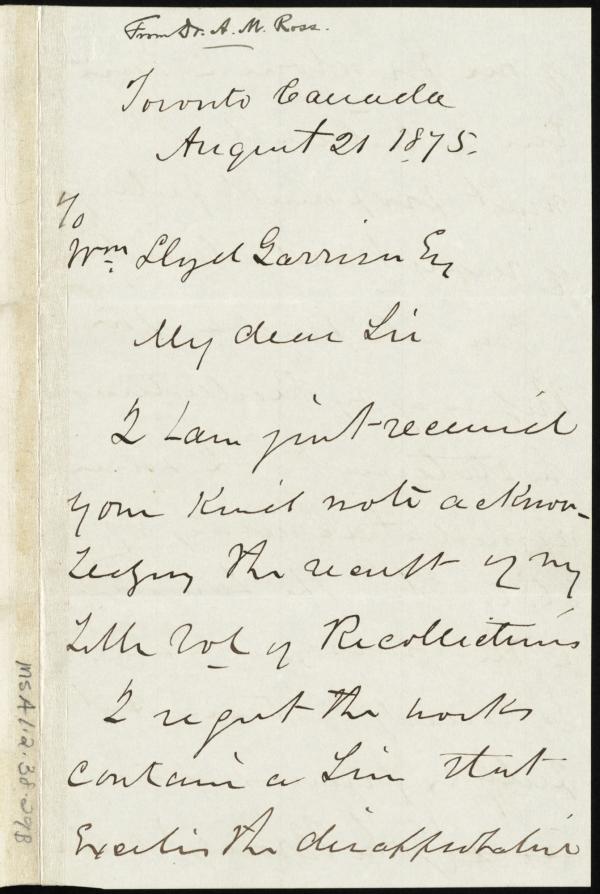 From Dr. A. M. Ross.
Toronto Canada
August 21 1875.
To
Wm. Lloyd Garrison Esq
My dear Sir
I have just received
your kind note acknow-
ledging the receipt of my
little Vol of Recollections
I regret the works
contain a line that
Excites the disapprobation
MS A 1.2. 38. 29B